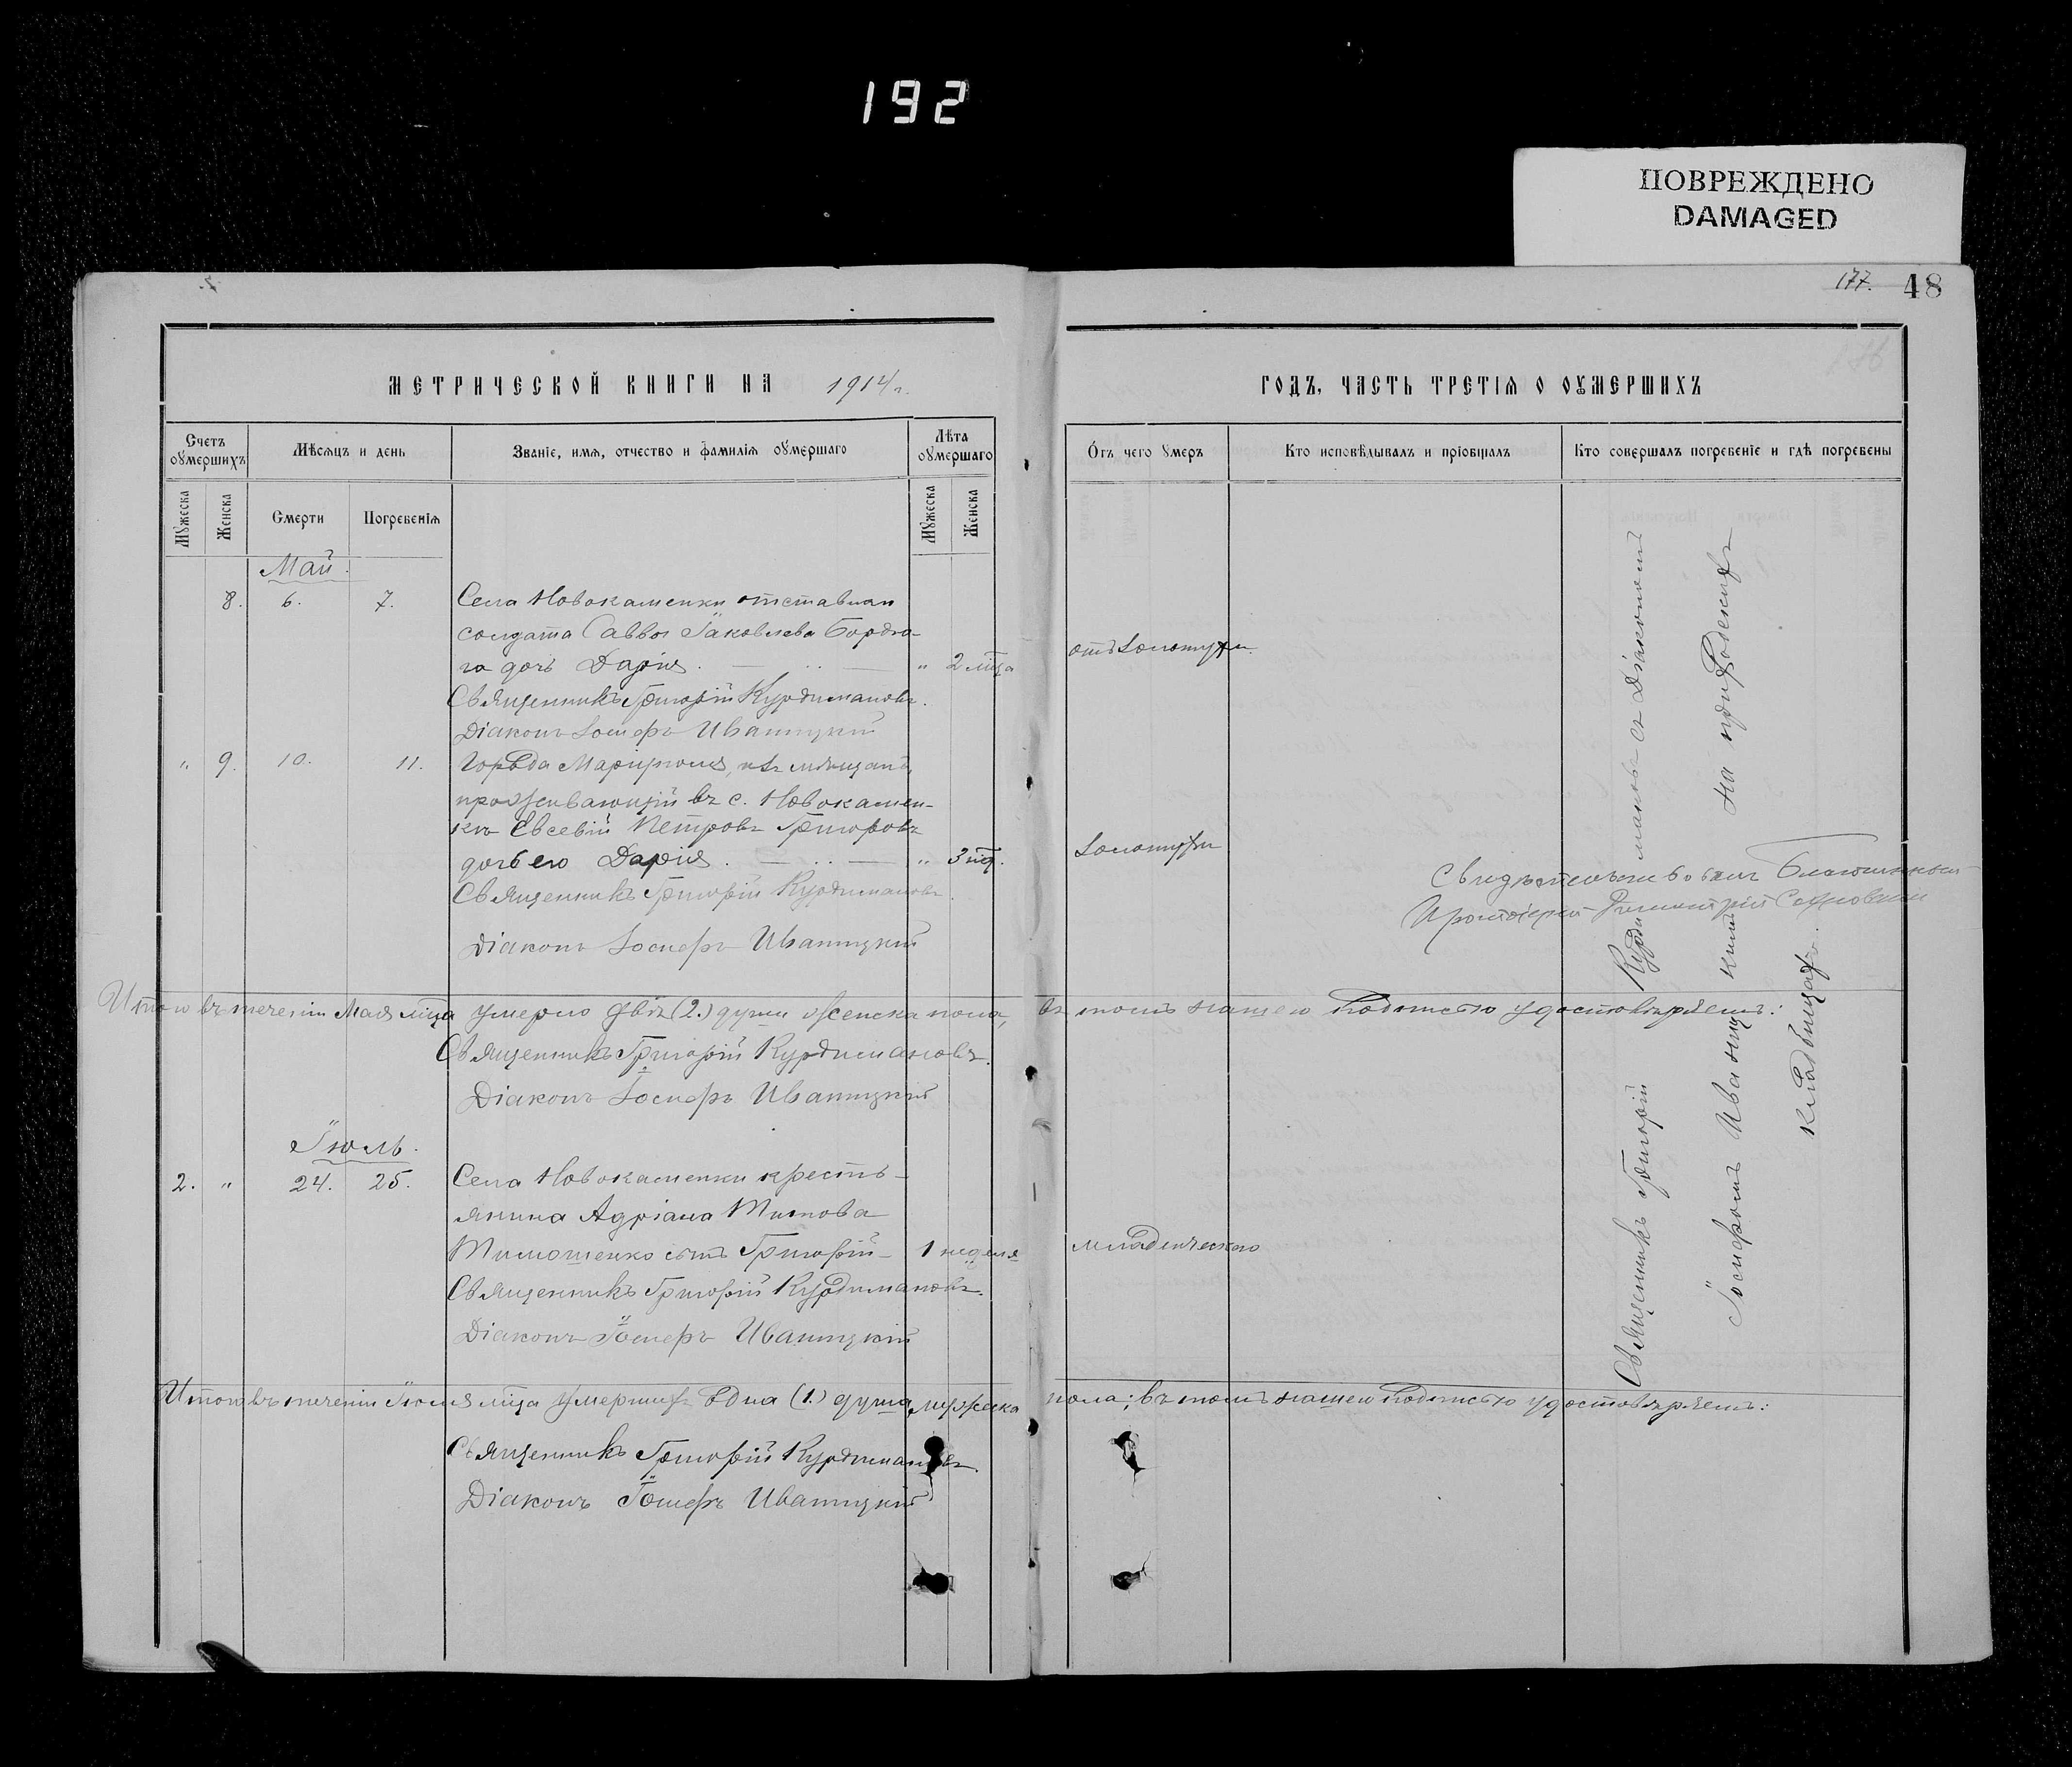 192
ПОВРЕЖДЕНО
DAMAGED
177. 48
МЕТРИЧЕСКОЙ КНИГИ НА 1914 г.
ГОДЪ, ЧАСТЬ ТРЕТІЯ О ОУМЕРШИХЪ
Счетъ оумершихъ
Мѣсяцъ и день
Званіе, имя, отчество и фамилія оумершаго
Лѣта оумершаго
Отъ чего умеръ
Кто исповѣдывалъ и пріобщалъ
Кто совершалъ погребеніе и гдѣ погребены
Мужеска
Женска
Смерти
Погребенія
Мужеска
Женска
Май.
8. 6. 7. Села Новокаменки отставнаго
солдата Саввы Іаковлева
го дочь Дарія. " 2 мца отъ золотухи.
Священникъ Григорій Курдимановъ.
Діаконъ Іосифъ Иваницкій
" 9. 10. 11. Города Маріуполя, изъ мѣщанъ,
проживающій въ с. Новокамен-
кѣ Евсевій Петровъ Григоровъ
дочь его Дарія. " 3 нед. Золотухи
Священникъ Григорій Курдимановъ.
Діаконъ Іосифъ Иваницкій
Итого въ теченіи Мая мца умерло двѣ (2.) души женска пола, въ томъ нашею подписью удостовѣряемъ:
Священникъ Григорій Курдимановъ.
Діаконъ Іосифъ Иваницкій
Іюль.
2. " 24. 25. Села Новокаменки кресть-
янина Адріана Титова
Тимошенко сынъ Григорій - 1 неделя младенческаго
Священникъ Григорій Курдимановъ.
Діаконъ Іосифъ Иваницкій
Итого въ теченіи Іюля мца умершихъ одна (1.) душа мужска пола; въ томъ нашею подписью удостовѣряемъ:
Священникъ Григорій Курдимановъ.
Діаконъ Іосифъ Иваницкій
Священникъ Григорій Курдимановъ съ Діакономъ
Іосифомъ Иваницкимъ на приходскомъ
кладбищѣ.
Благочинный
Протоіерей